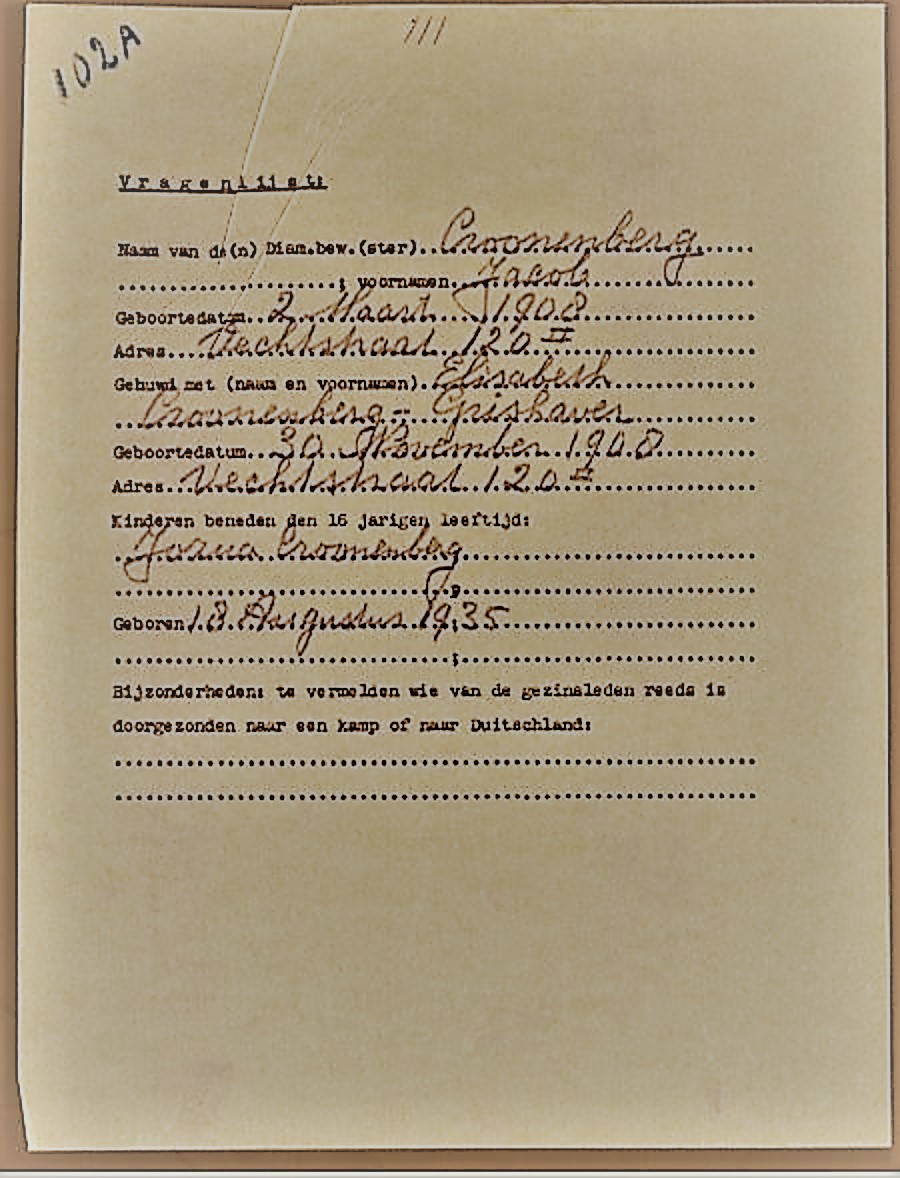 102A
711
Vragenlijst:
Naam van de(n) Diam.bew.(ster)..Croonenberg......
......................; voornamen...Jacob..................
Geboortedatum..2 Maart 1908..................
Adres....Vechtstraat 120 II..................
Gehuwd met (naam en voornamen)..Elisabeth..................
..Croonenberg-Grishaver..................
Geboortedatum..30 November 1908..................
Adres...Vechtstraat 120 II..................
Kinderen beneden den 16 jarigen leeftijd:
..Croonenberg..................
Geboren 18 Augustus 1935..................
..................;..................
Bijzonderheden: te vermelden wie van de gezinsleden reeds is
doorgezonden naar een kamp of naar Duitschland: